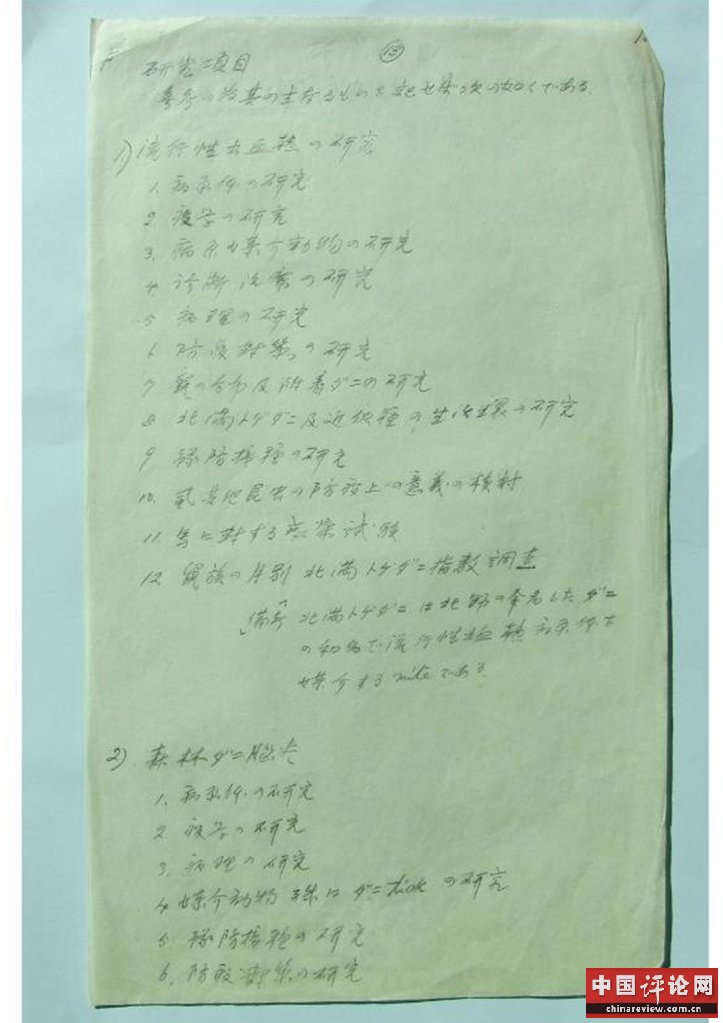 13
研究項目
1) 流行性出血熱の研究
1. 病原体の研究
2. 疫学の研究
3. 病原媒介動物の研究
4. 診断治療の研究
5. 病理の研究
6 防疫対策の研究
7 鼠の分布及附着ダニの研究
8 北満トゲダニ及近似種の生活環の研究
9 予防接種の研究
10. 其他昆虫の防疫上の意義の検討
11. 馬に対する感染試験
12 鼠族の月別北満トゲダニ指数調査
備考 北満トゲダニは北野の命名したダニ
の和名で流行性出血熱病原体を
媒介するmiteである.
2) 森林ダニ脳炎
1. 病原体の研究
2 疫学の研究
3. 病理の研究
4 媒介動物 殊にダニtickの研究
5. 予防接種の研究
6. 防疫対策の研究
中国评论网
chinareview.com.cn